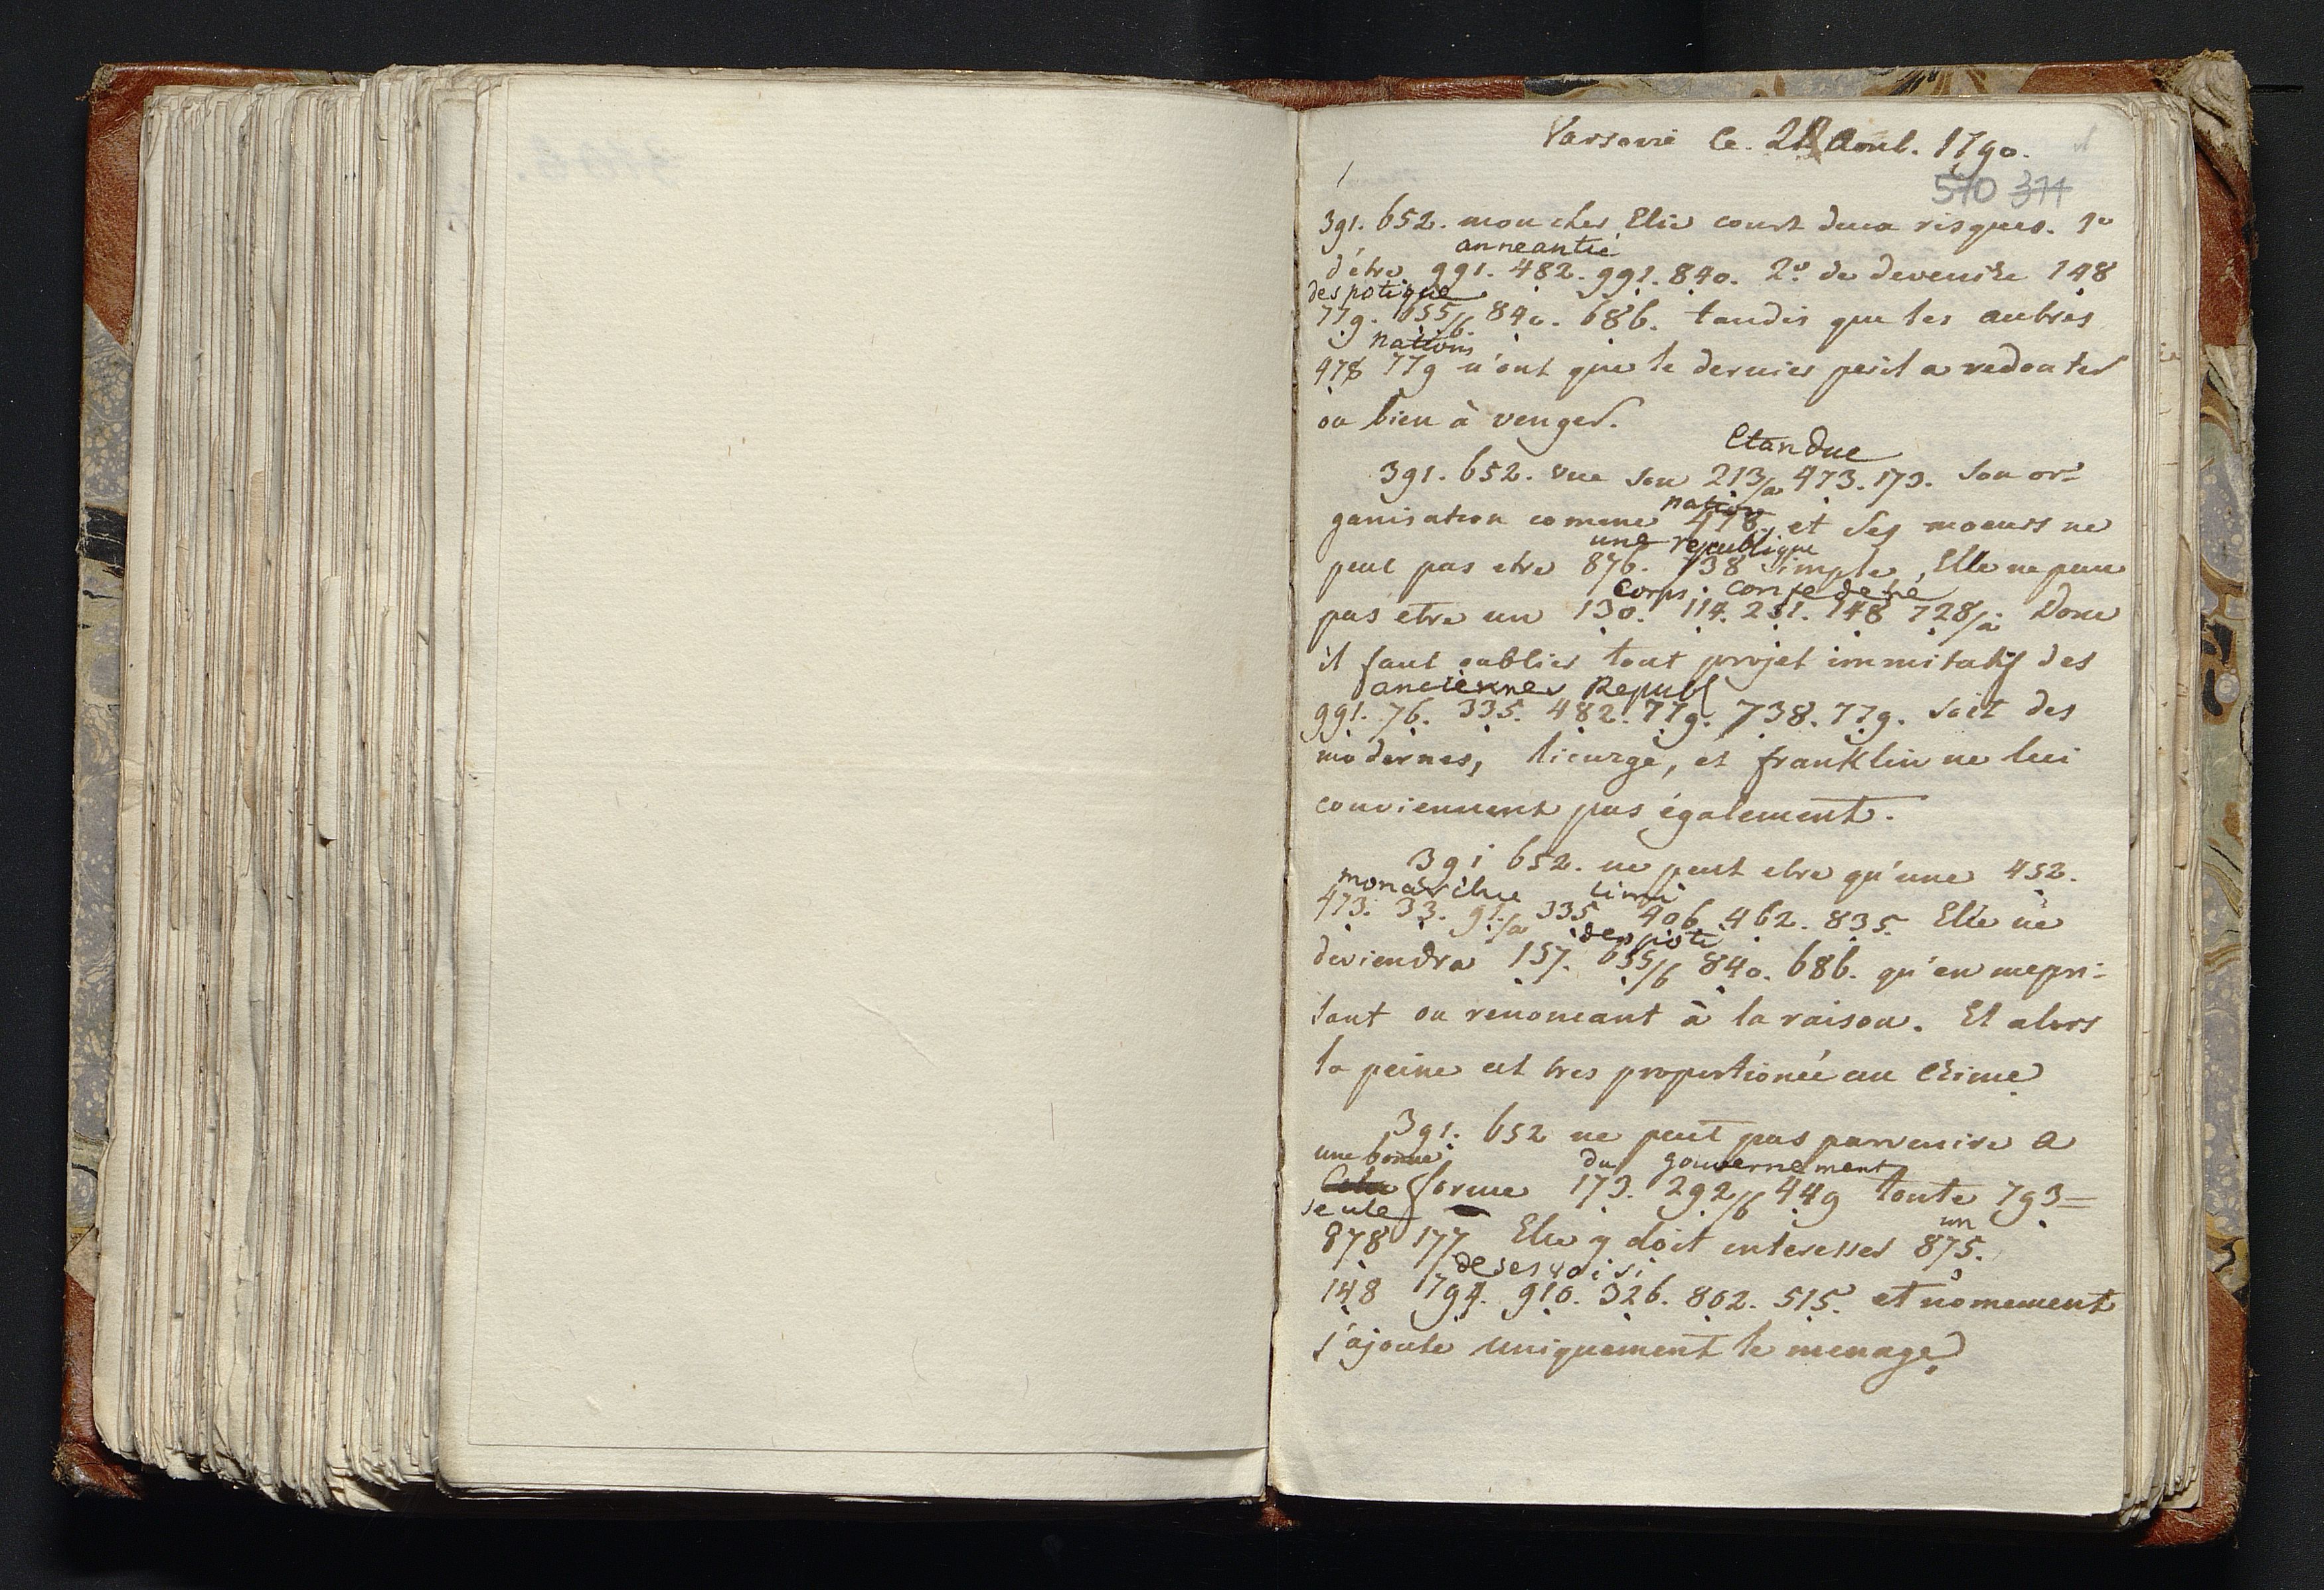 Varsovie le. 21 Aout. 1790.
570 374
391. 652. mon cher Elie court deux risques. 1º
anneantie
d'être 991. 482. 991. 840. 2º de devenire 148
despotique
779. 655/b. 840. 686. tandis que les autres
nations
478 779 n'ont que le dernier peril a redouter
ou bien à venger.
Etandue
391. 652. vue son 213/a 473. 173. son or=
nation
ganisation comme 478. et ses moeurs ne
une republique
peut pas etre 876. 738 simple, Elle ne peu
corps. confederé
pas etre un 130. 114. 251. 148 728/a Donc
il faut oublier tout projet immitatif des
anciennes Republ
991. 76. 335. 482. 779. 738. 779. soit des
modernes, licurge, et franklin ne lui
conviennent pas également.
391 652. ne peut etre qu'une 452.
monarchie limi
473. 33. 91/a 335 406. 462. 835. Elle ne
despoti
deviendra 157. 655/b 840. 686. qu'en mepri=
sant ou renoncant à la raison. Et alors
la peine est tres proportionée au crime
391. 652 ne peut pas parvenire a
une bonne du gouvernement
forme 173. 292/b 449 toute 793=
seule un
878 177 Elle y doit interesser 875.
de ses voisi
148 794. 910. 326. 802. 515. et nomement
j'ajoute uniquement le menage